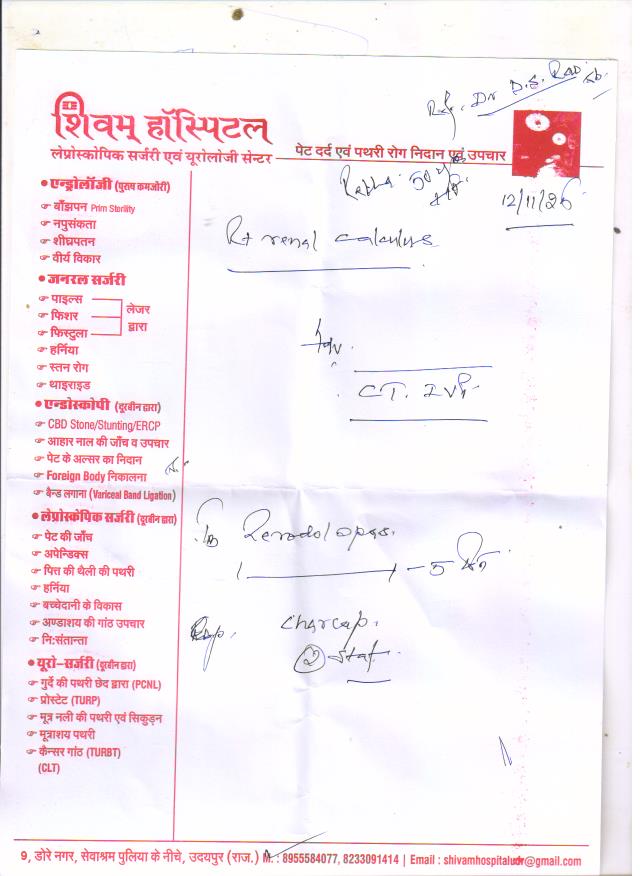 Ref. Dr D.S. Rao
शिवम् हॉस्पिटल
लेप्रोस्कोपिक सर्जरी एवं यूरोलोजी सेन्टर
पेट दर्द एवं पथरी रोग निदान एवं उपचार
12/11/26
Rt renal calculus
Inv.
CT. IVP
1 — 1 - 5
Charcap.
stat.
• एन्ड्रोलॉजी (पुरूष कमजोरी)
☞ बाँझपन Prim Sterility
☞ नपुसंकता
☞ शीघ्रपतन
☞ वीर्य विकार
• जनरल सर्जरी
☞ पाइल्स
☞ फिशर
☞ फिस्टुला
लेजर
द्वारा
☞ हर्निया
☞ स्तन रोग
☞ थाइराइड
• एन्डोस्कोपी (दूरबीन द्वारा)
☞ CBD Stone/Stunting/ERCP
☞ आहार नाल की जाँच व उपचार
☞ पेट के अल्सर का निदान
☞ Foreign Body निकालना
☞ बैन्ड लगाना (Variceal Band Ligation)
• लेप्रोस्केपिक सर्जरी (दूरबीन द्वारा)
☞ पेट की जाँच
☞ अपेन्डिक्स
☞ पित्त की थैली की पथरी
☞ हर्निया
☞ बच्चेदानी के विकास
☞ अण्डाशय की गांठ उपचार
☞ नि:संतान्ता
• यूरो-सर्जरी (दूरबीन द्वारा)
☞ गुर्दे की पथरी छेद द्वारा (PCNL)
☞ प्रोस्टेट (TURP)
☞ मूत्र नली की पथरी एवं सिकुड़न
☞ मूत्राशय पथरी
☞ कैन्सर गांठ (TURBT)
(CLT)
9, डोरे नगर, सेवाश्रम पुलिया के नीचे, उदयपुर (राज.) M. : 8955584077, 8233091414 | Email : shivamhospitaludr@gmail.com